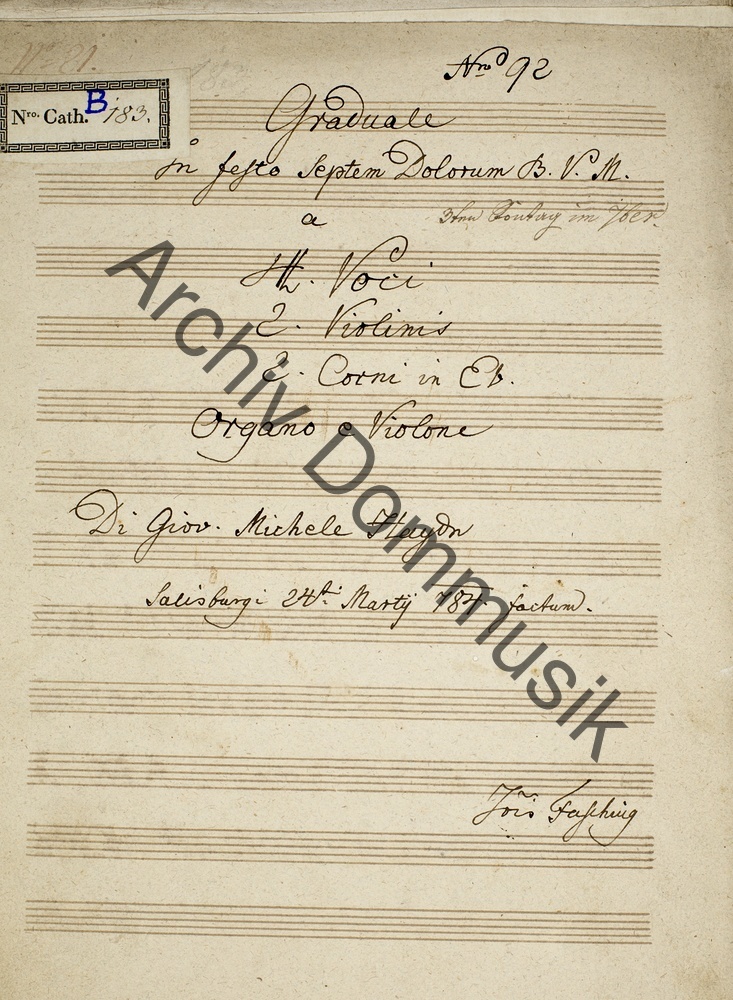 No 21.
Nro 92
Nro. Cath. B 183.
Graduale
In festo Septem Dolorum B. V. M.
a
3ten Sontag im 7ber.
4. Voci
2. Violinis
2. Corni in Eb.
Organo e Violone
Di Giov. Michele Haydn
Salisburgi 24ti Martij 784 factum.
Jois Fasching
Archiv Dommusik